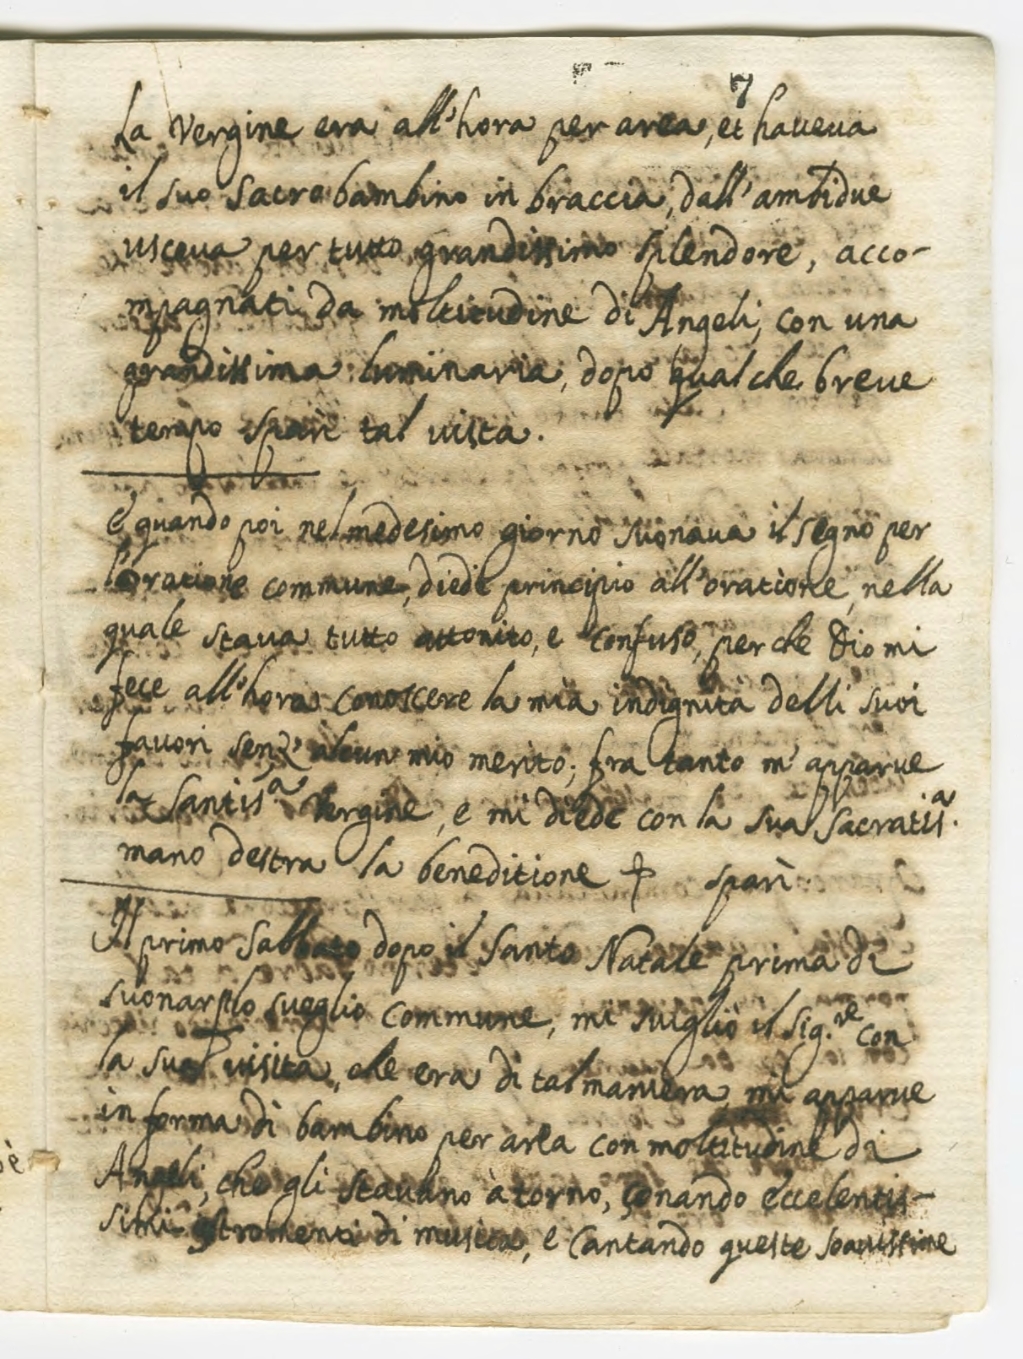 7
La Vergine era all'hora per area, et haveva
il suo sacro bambino in braccia, dall'ambidue
usceva per tutto grandissimo splendore, acco-
mpagnati da moltitudine di Angeli, con una
grandissima luminaria, dopo qualche breve
tempo sparì tal vista.
E quando poi nel medesimo giorno suonava il segno per
l'oratione commune, diede principio all'oratione, nella
quale stava tutto attonito, e confuso, perche Dio mi
fece all'hora conoscere la mia indignità delli suoi
favori senz'alcun mio merito; fra tanto m'apparve
la Santisª Vergine, e mi diede con la sua Sacratisª.
mano destra la beneditione ✝ sparì
Il primo Sabbato dopo il Santo Natale prima di
suonar lo sveglio commune, mi svigliò il Sig.re con
la sua visita, che era di tal maniera, mi apparve
in forma di bambino per area con moltitudine di
Angeli, che gli stavano à torno, sonando eccelentis-
simi stromenti di musica, e cantando queste soavissime
è